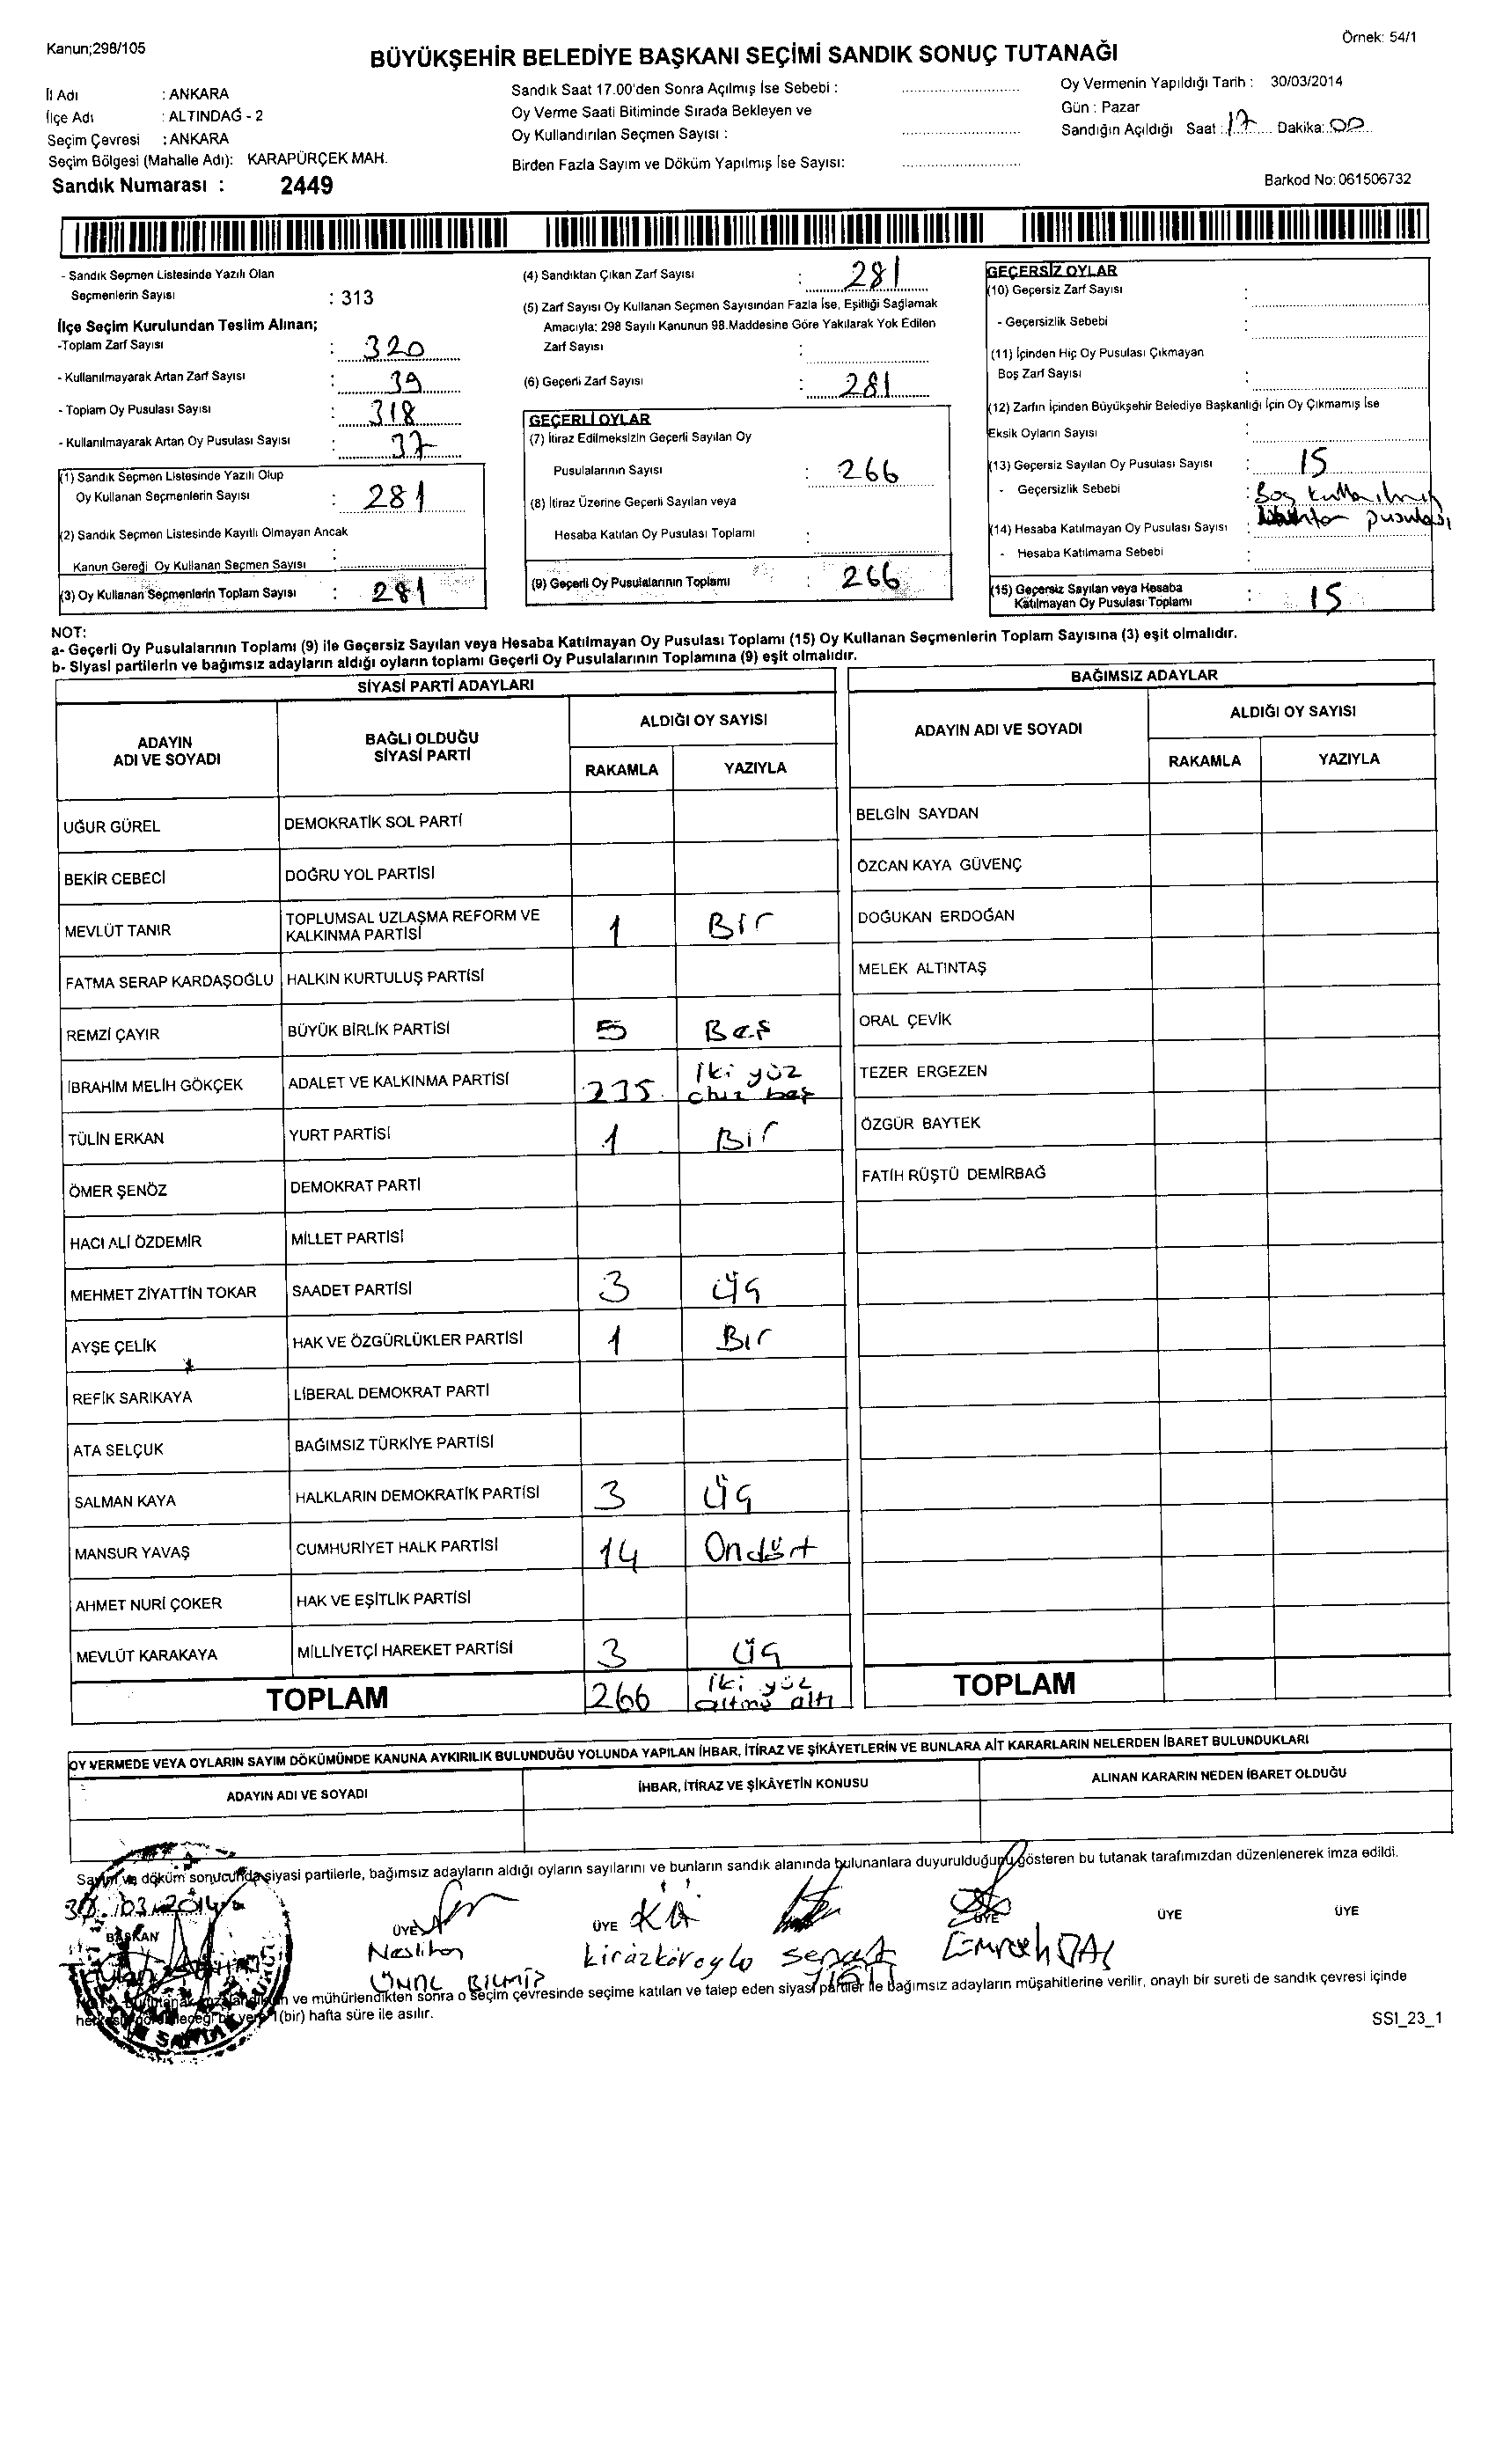 Kanun;298/105
Örnek: 54/1
BÜYÜKŞEHİR BELEDİYE BAŞKANI SEÇİMİ SANDIK SONUÇ TUTANAĞI
İl Adı : ANKARA
İlçe Adı : ALTINDAĞ - 2
Seçim Çevresi : ANKARA
Seçim Bölgesi (Mahalle Adı): KARAPÜRÇEK MAH.
Sandık Numarası : 2449
Sandık Saat 17.00'den Sonra Açılmış İse Sebebi :
Oy Verme Saati Bitiminde Sırada Bekleyen ve
Oy Kullandırılan Seçmen Sayısı :
Birden Fazla Sayım ve Döküm Yapılmış İse Sayısı:
Oy Vermenin Yapıldığı Tarih : 30/03/2014
Gün : Pazar
Sandığın Açıldığı Saat : 17 Dakika: 00
Barkod No: 061506732
- Sandık Seçmen Listesinde Yazılı Olan
Seçmenlerin Sayısı : 313
İlçe Seçim Kurulundan Teslim Alınan;
-Toplam Zarf Sayısı : 320
- Kullanılmayarak Artan Zarf Sayısı : 39
- Toplam Oy Pusulası Sayısı : 318
- Kullanılmayarak Artan Oy Pusulası Sayısı : 37
(1) Sandık Seçmen Listesinde Yazılı Olup
Oy Kullanan Seçmenlerin Sayısı : 281
(2) Sandık Seçmen Listesinde Kayıtlı Olmayan Ancak
Kanun Gereği Oy Kullanan Seçmen Sayısı :
(3) Oy Kullanan Seçmenlerin Toplam Sayısı : 281
(4) Sandıktan Çıkan Zarf Sayısı : 281
(5) Zarf Sayısı Oy Kullanan Seçmen Sayısından Fazla İse, Eşitliği Sağlamak
Amacıyla: 298 Sayılı Kanunun 98.Maddesine Göre Yakılarak Yok Edilen
Zarf Sayısı :
(6) Geçerli Zarf Sayısı : 281
GEÇERLİ OYLAR
(7) İtiraz Edilmeksizin Geçerli Sayılan Oy
Pusulalarının Sayısı : 266
(8) İtiraz Üzerine Geçerli Sayılan veya
Hesaba Katılan Oy Pusulası Toplamı :
(9) Geçerli Oy Pusulalarının Toplamı : 266
GEÇERSİZ OYLAR
(10) Geçersiz Zarf Sayısı :
- Geçersizlik Sebebi :
(11) İçinden Hiç Oy Pusulası Çıkmayan
Boş Zarf Sayısı :
(12) Zarfın İçinden Büyükşehir Belediye Başkanlığı İçin Oy Çıkmamış İse
Eksik Oyların Sayısı :
(13) Geçersiz Sayılan Oy Pusulası Sayısı : 15
- Geçersizlik Sebebi : Boş kullanılmış
pusulası
(14) Hesaba Katılmayan Oy Pusulası Sayısı :
- Hesaba Katılmama Sebebi :
(15) Geçersiz Sayılan veya Hesaba
Katılmayan Oy Pusulası Toplamı : 15
NOT:
a- Geçerli Oy Pusulalarının Toplamı (9) ile Geçersiz Sayılan veya Hesaba Katılmayan Oy Pusulası Toplamı (15) Oy Kullanan Seçmenlerin Toplam Sayısına (3) eşit olmalıdır.
b- Siyasi partilerin ve bağımsız adayların aldığı oyların toplamı Geçerli Oy Pusulalarının Toplamına (9) eşit olmalıdır.
SİYASİ PARTİ ADAYLARI
ADAYIN
ADI VE SOYADI
BAĞLI OLDUĞU
SİYASİ PARTİ
ALDIĞI OY SAYISI
RAKAMLA YAZIYLA
UĞUR GÜREL DEMOKRATİK SOL PARTİ
BEKİR CEBECİ DOĞRU YOL PARTİSİ
MEVLÜT TANIR TOPLUMSAL UZLAŞMA REFORM VE
KALKINMA PARTİSİ 1 Bir
FATMA SERAP KARDAŞOĞLU HALKIN KURTULUŞ PARTİSİ
REMZİ ÇAYIR BÜYÜK BİRLİK PARTİSİ 5 Beş
İBRAHİM MELİH GÖKÇEK ADALET VE KALKINMA PARTİSİ 235 iki yüz
otuz beş
TÜLİN ERKAN YURT PARTİSİ 1 Bir
ÖMER ŞENÖZ DEMOKRAT PARTİ
HACI ALİ ÖZDEMİR MİLLET PARTİSİ
MEHMET ZİYATTİN TOKAR SAADET PARTİSİ 3 Üç
AYŞE ÇELİK HAK VE ÖZGÜRLÜKLER PARTİSİ 1 Bir
REFİK SARIKAYA LİBERAL DEMOKRAT PARTİ
ATA SELÇUK BAĞIMSIZ TÜRKİYE PARTİSİ
SALMAN KAYA HALKLARIN DEMOKRATİK PARTİSİ 3 Üç
MANSUR YAVAŞ CUMHURİYET HALK PARTİSİ 14 Ondört
AHMET NURİ ÇOKER HAK VE EŞİTLİK PARTİSİ
MEVLÜT KARAKAYA MİLLİYETÇİ HAREKET PARTİSİ 3 Üç
TOPLAM 266 iki yüz
altmış altı
BAĞIMSIZ ADAYLAR
ADAYIN ADI VE SOYADI
ALDIĞI OY SAYISI
RAKAMLA YAZIYLA
BELGİN SAYDAN
ÖZCAN KAYA GÜVENÇ
DOĞUKAN ERDOĞAN
MELEK ALTINTAŞ
ORAL ÇEVİK
TEZER ERGEZEN
ÖZGÜR BAYTEK
FATİH RÜŞTÜ DEMİRBAĞ
TOPLAM
OY VERMEDE VEYA OYLARIN SAYIM DÖKÜMÜNDE KANUNA AYKIRILIK BULUNDUĞU YOLUNDA YAPILAN İHBAR, İTİRAZ VE ŞİKÂYETLERİN VE BUNLARA AİT KARARLARIN NELERDEN İBARET BULUNDUKLARI
ADAYIN ADI VE SOYADI İHBAR, İTİRAZ VE ŞİKÂYETİN KONUSU ALINAN KARARIN NEDEN İBARET OLDUĞU
Sayım ve döküm sonucunda siyasi partilerle, bağımsız adayların aldığı oyların sayılarını ve bunların sandık alanında bulunanlara duyurulduğunu gösteren bu tutanak tarafımızdan düzenlenerek imza edildi.
30.03.2014
BAŞKAN ÜYE ÜYE ÜYE ÜYE ÜYE
Neslihan Kirazköroylo Serhat Emrah
ve mühürlendikten sonra o seçim çevresinde seçime katılan ve talep eden siyasi partiler ile bağımsız adayların müşahitlerine verilir, onaylı bir sureti de sandık çevresi içinde
1(bir) hafta süre ile asılır.
SSI_23_1